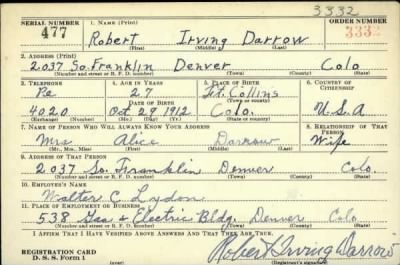 3332
SERIAL NUMBER 1. NAME (Print) ORDER NUMBER
477 Robert Irving Darrow 3332
(First) (Middle) (Last)
2. ADDRESS (Print)
2037 So. Franklin Denver Colo
(Number and street or R. F. D. number) (Town) (County) (State)
3. TELEPHONE 4. AGE IN YEARS 5. PLACE OF BIRTH 6. COUNTRY OF CITIZENSHIP
Pe 27 Ft. Collins
(Town or county)
4020 Oct 29 1912 Colo. U.S.A
(Exchange) (Number) (Mo.) (Day) (Yr.) (State or country)
7. NAME OF PERSON WHO WILL ALWAYS KNOW YOUR ADDRESS 8. RELATIONSHIP OF THAT PERSON
Mrs Alice Darrow Wife
(Mr., Mrs., Miss) (First) (Middle) (Last)
9. ADDRESS OF THAT PERSON
2037 So. Franklin Denver Colo.
(Number and street or R. F. D. number) (Town) (County) (State)
10. EMPLOYER'S NAME
Walter C Lydon
11. PLACE OF EMPLOYMENT OR BUSINESS
538 Gas & Electric Bldg. Denver Colo
(Number and street or R. F. D. number) (Town) (County) (State)
I AFFIRM THAT I HAVE VERIFIED ABOVE ANSWERS AND THAT THEY ARE TRUE.
REGISTRATION CARD
D. S. S. Form 1
Robert Irving Darrow
(Registrant's signature)